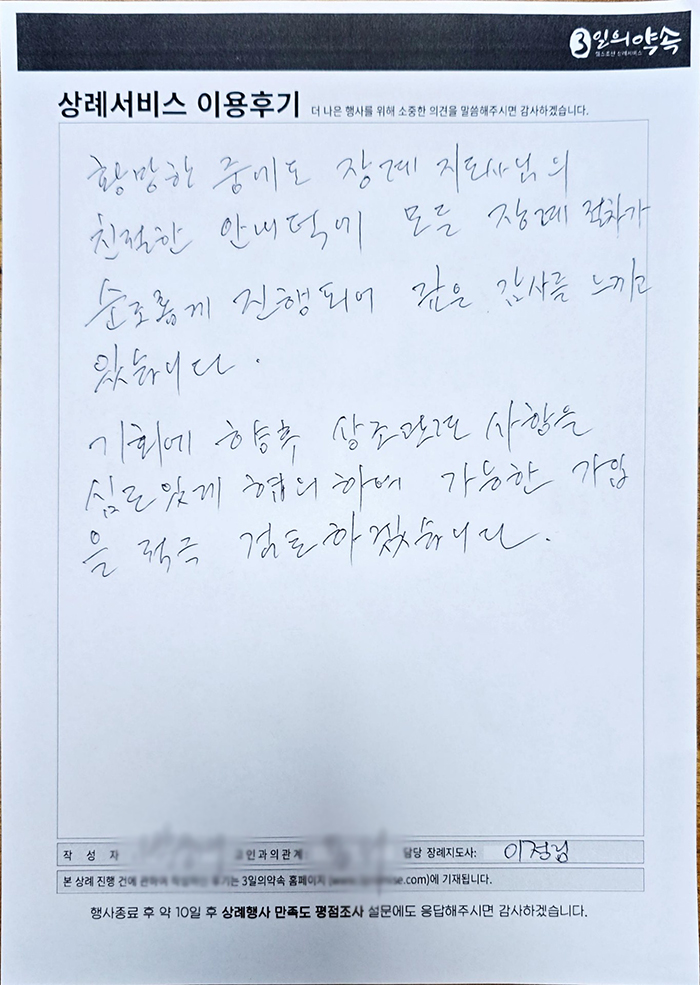 3일의약속
상례서비스 이용후기 더 나은 행사를 위해 소중한 의견을 말씀해주시면 감사하겠습니다.
황망한 중에도 장례 지도사님의
친절한 안내덕에 모든 장례 절차가
순조롭게 진행되어 깊은 감사를 느끼고
있습니다.
기회에 향후 상조관련 사항을
심도있게 협의하에 가능한 가입
을 적극 검토하겠습니다.
작 성 자 고인과의관계 담당 장례지도사: 이정님
본 상례 진행 건에 3일의약속 홈페이지 에 기재됩니다.
행사종료 후 약 10일 후 상례행사 만족도 평점조사 설문에도 응답해주시면 감사하겠습니다.